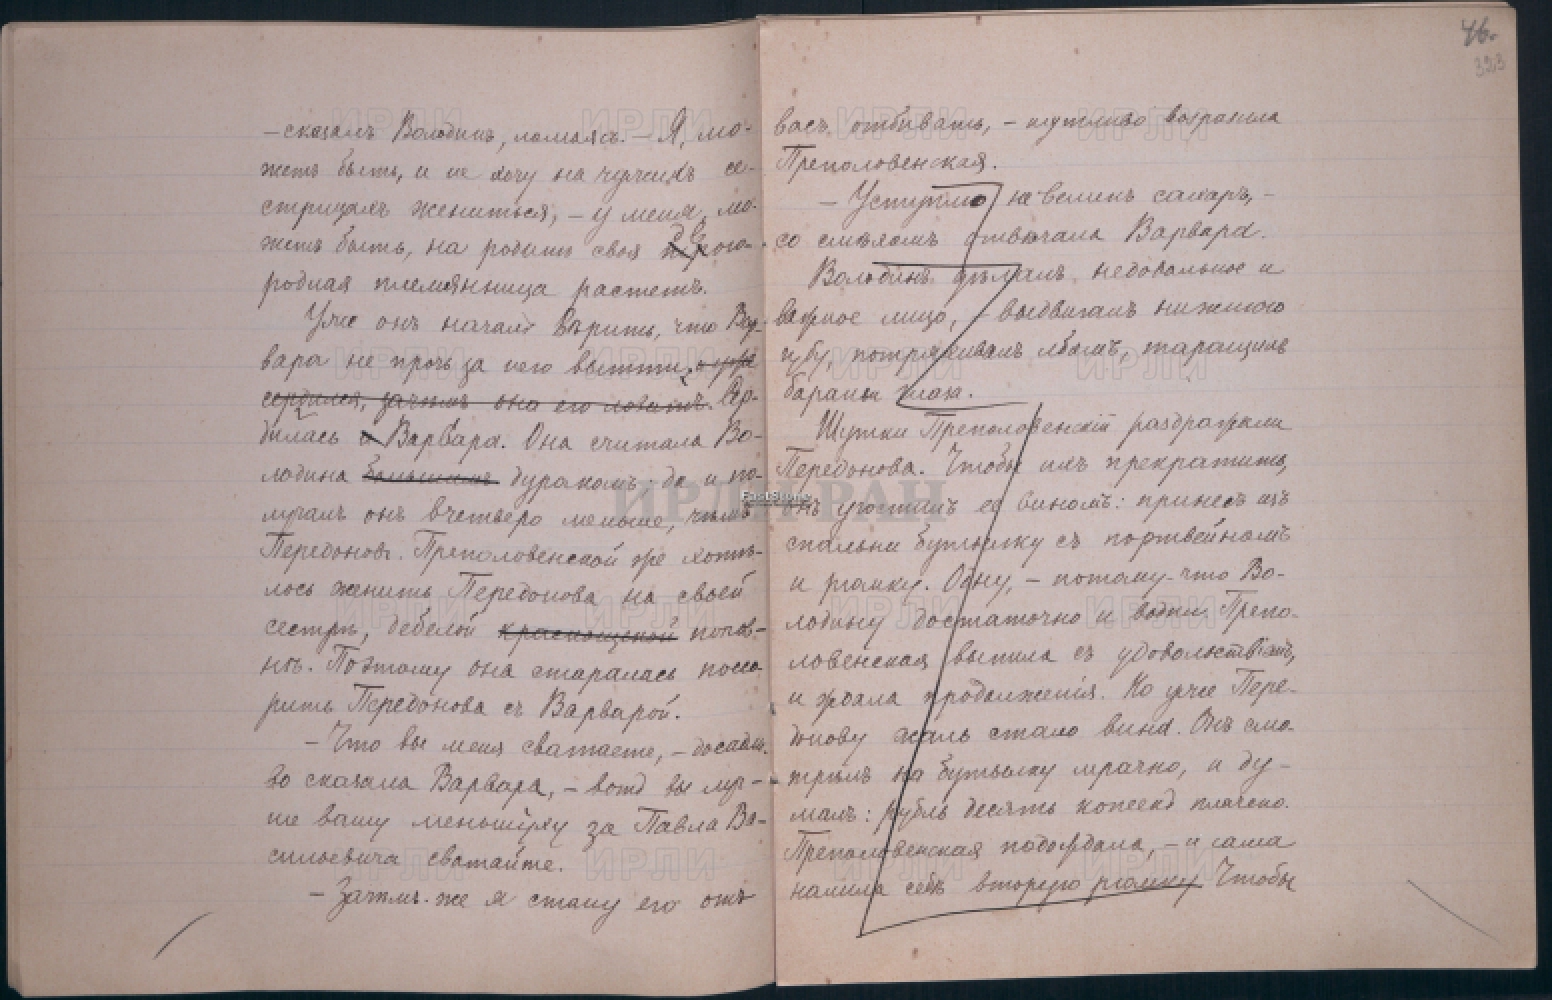 — сказалъ Володинъ, ломаясь. — Я, мо-
жетъ быть, и не хочу на чужихъ се-
стрицахъ жениться, — у меня, мо-
жетъ быть, на родинѣ своя
родная племянница растетъ.
Уже онъ началъ вѣрить, что Вар-
вара не прочь за него выйти, и уже
сердился, зачѣмъ она его ловитъ. Сер-
дилась и Варвара. Она считала Во-
лодина большимъ дуракомъ; да и по-
лучалъ онъ вчетверо меньше, чѣмъ
Передоновъ. Преполовенской же хотѣ-
лось женить Передонова на своей
сестрѣ, дебелой краснощекой попов-
нѣ. Поэтому она старалась поссо-
рить Передонова съ Варварой.
— Что вы меня сватаете, — досадли-
во сказала Варвара, — вотъ вы луч-
ше вашу меньшуху за Павла Ва-
сильевича сватайте.
— Зачѣмъ же я стану его отъ
46.
323
васъ отбивать, — шутливо возразила
Преполовенская.
— Уступлю, не великъ сахаръ, —
со смѣхомъ отвѣчала Варвара.
Володинъ дѣлалъ недовольное и
важное лицо, — выдвигалъ нижнюю
губу, потряхивалъ лбомъ, таращилъ
бараньи глаза.
Шутки Преполовенскiй раздражали
Передонова. Чтобы ихъ прекратить,
онъ угостилъ ее виномъ: принесъ изъ
спальни бутылку съ портвейномъ
и рюмку. Одну, — потому-что Во-
лодину достаточно и водки. Препо-
ловенская выпила съ удовольствiемъ,
и ждала продолженiя. Но уже Пере-
донову жаль стало вина. Онъ смо-
трѣлъ на бутылку мрачно, и ду-
малъ: рубль десять копеекъ плачено.
Преполовенская подождала, — и сама
налила себѣ вторую рюмку. Чтобы
ИРЛИ РАН
FastStone